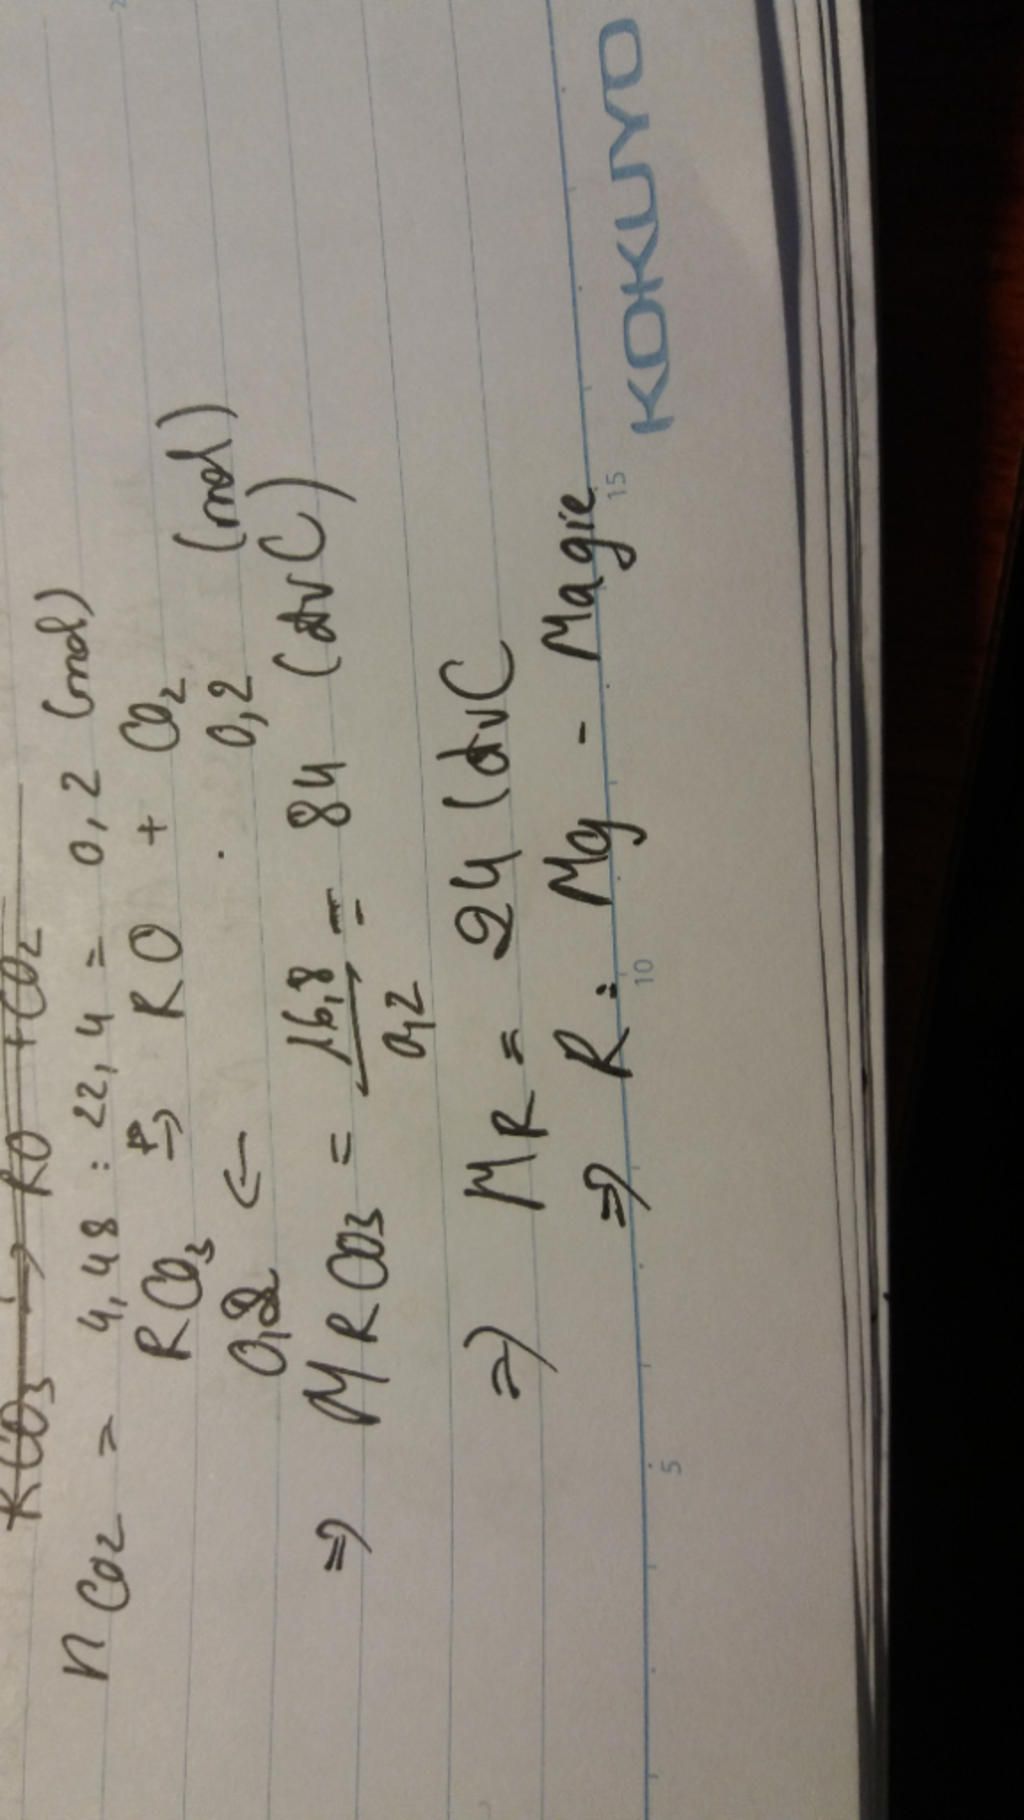 RCO3 → RO + CO2
nCO2 = 4,48 : 22,4 = 0,2 (mol)
RCO3 t°→ RO + CO2
0,2 ← 0,2 (mol)
⇒ MRCO3 = 16,8 / 0,2 = 84 (đvC)
⇒ MR = 24 (đvC
⇒ R: Mg - Magie
5 10 15
KOKUYO